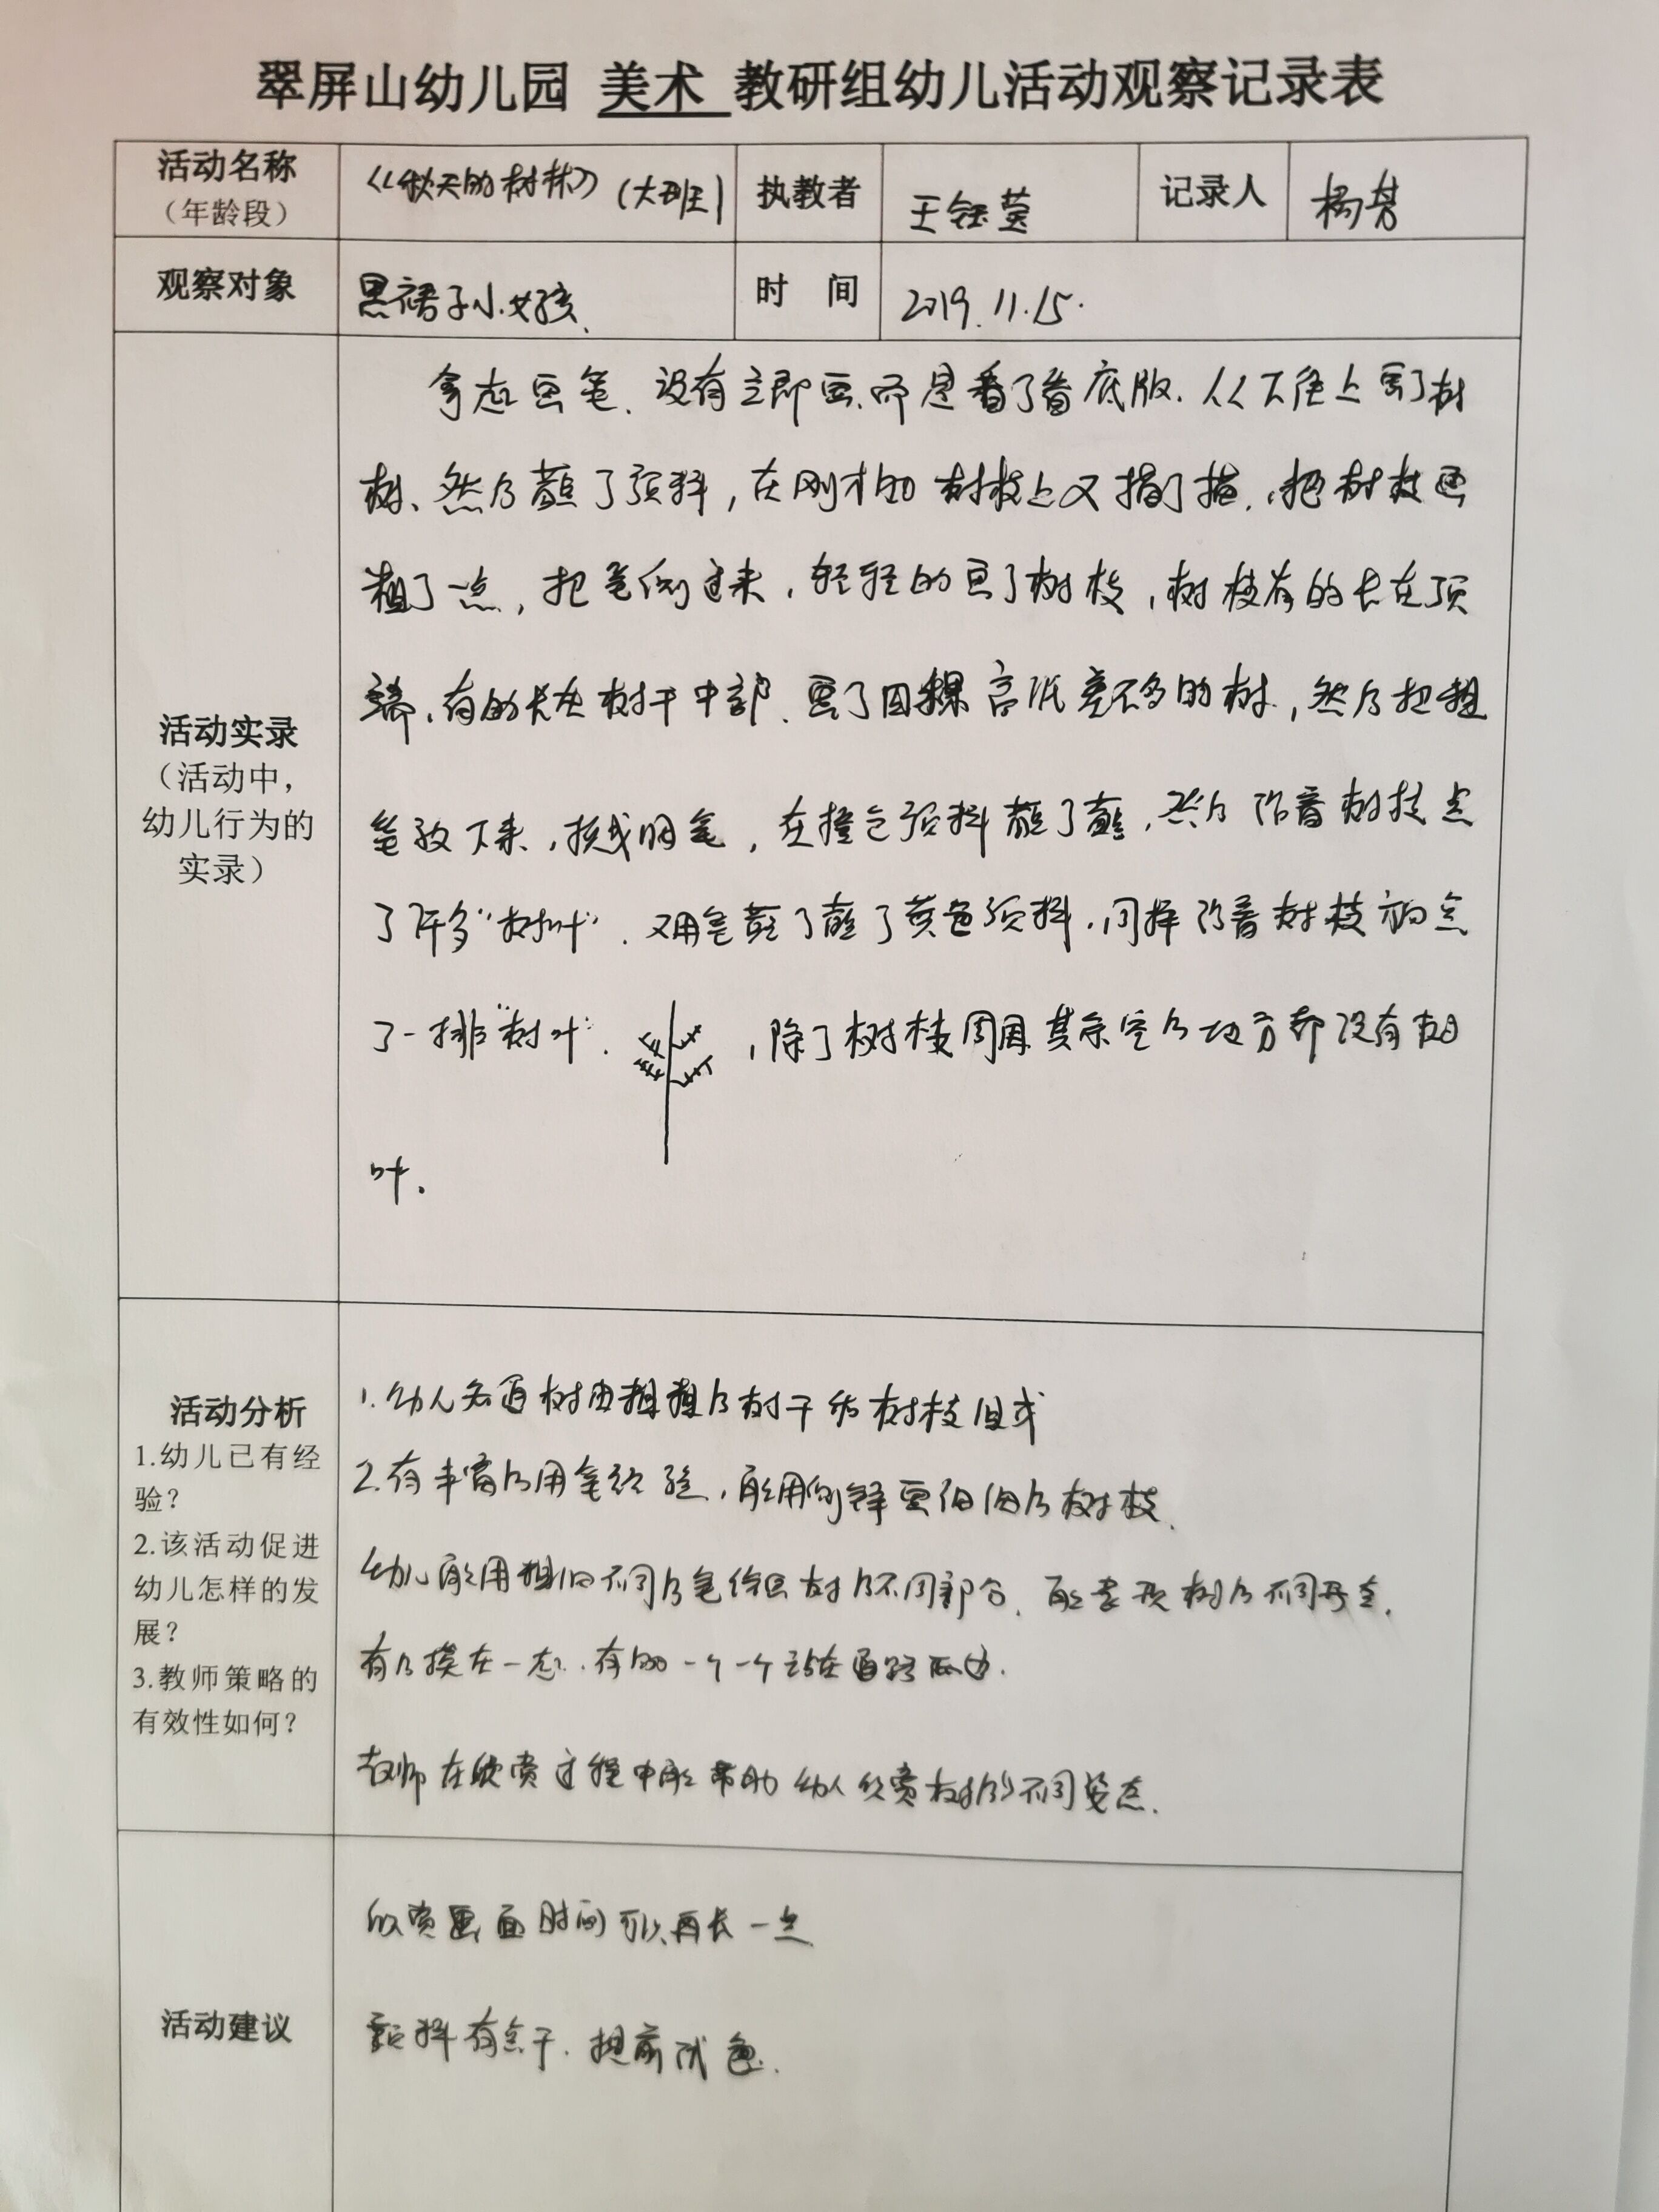 翠屏山幼儿园 美术 教研组幼儿活动观察记录表
活动名称
（年龄段）
《秋天的树林》（大班）
执教者
王钰莹
记录人
杨芳
观察对象
黑裙子小女孩、
时 间
2019.11.15.
活动实录
（活动中，
幼儿行为的
实录）
拿起画笔、没有立即画、而是看了看底版、从下往上画了树
树、然后蘸了颜料，在刚才的树枝上又描了描，把树枝画
粗了一点，把笔倒过来，轻轻的画了树枝，树枝有的长在顶
端，有的长在树干中部、画了四棵高低差不多的树，然后把粗
笔放下来，换成细笔，在橙色颜料蘸了蘸，然后沿着树枝点
了许多“树叶”．又用笔蘸了蘸了黄色颜料，同样沿着树枝点
了一排“树叶”．，除了树枝周围其余空的地方都没有树
叶．
活动分析
1.幼儿已有经
验？
2.该活动促进
幼儿怎样的发
展？
3.教师策略的
有效性如何？
1.幼儿知道树由粗粗的树干和树枝组成
2.有丰富的用笔经验，能用侧锋画细细的树枝、
幼儿能用粗细不同的笔绘画树的不同部分，能表现树的不同形态，
有的挨在一起，有的一个一个站在道路两边．
教师在欣赏过程中能帮助幼儿欣赏树的不同姿态．
活动建议
欣赏画面时间可以再长一点
颜料有点干．提前试色．